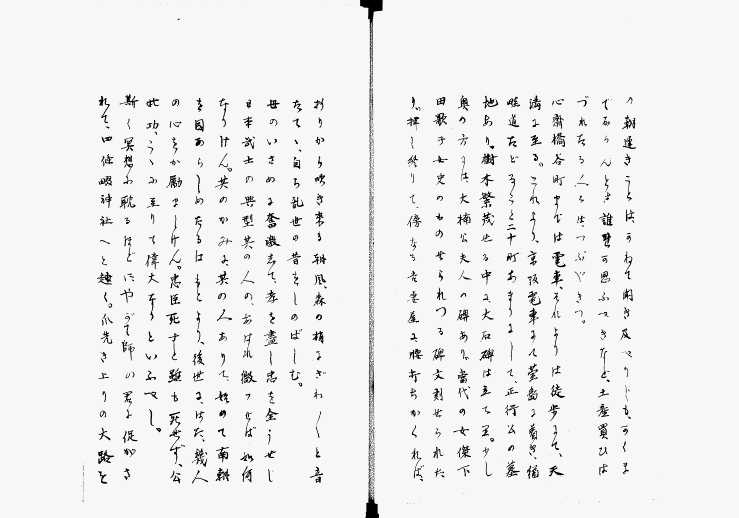 の朝遅きことは、かねて聞き及べりしも、かくま
であらんとは誰か思ふべきなど、土産買ひは
づれたる人々は、つぶやきつ。
心斎橋谷町までは電車、それよりは徒歩にて、天
満に至る。これより、京阪電車にて萱島に着き、細
畦道たどること二十町あまりにして、正行公の墓
地あり。樹木繁茂せる中に大石碑は立てり。少し
奥の方には大楠公夫人の碑あり。当代の女傑下
田歌子女史のものせられつる碑文刻せられた
り。拝し終りて、傍なる茶屋に腰打ちかくれば、
おりから吹き来る朝風、森の梢にざわ／＼と音
たてゝ、自ら乱世の昔をしのばしむ。
母のいさめに奮激して、孝を尽し忠を全うせし
日本武士の典型其の人の、あはれ微つせば如何
なりけん。其のかみに其の人ありて、始めて南朝
を固あらしめたるはもとより、後世に、はた、幾人
の心をか励ましけん。忠臣死すと雖も死せず、公
の功、こゝに至りて偉大なりといふべし。
斯く冥想に耽るほどにやがて師の君に促がさ
れて、四條畷神社へと趣く。爪先き上りの大路を